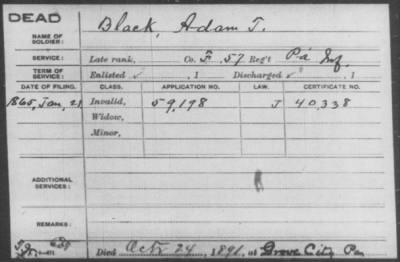 DEAD
Black, Adam T.
NAME OF SOLDIER:
SERVICE: Late rank, Co. F. 57 Reg't Pa Inf.
TERM OF SERVICE: Enlisted , 1 Discharged , 1
DATE OF FILING. CLASS. APPLICATION NO. LAW. CERTIFICATE NO.
1865, Jan, 21 Invalid, 59,198 J 40,338
Widow,
Minor,
ADDITIONAL SERVICES:
REMARKS:
Died Octr 24, 1891, at Grove City Pa